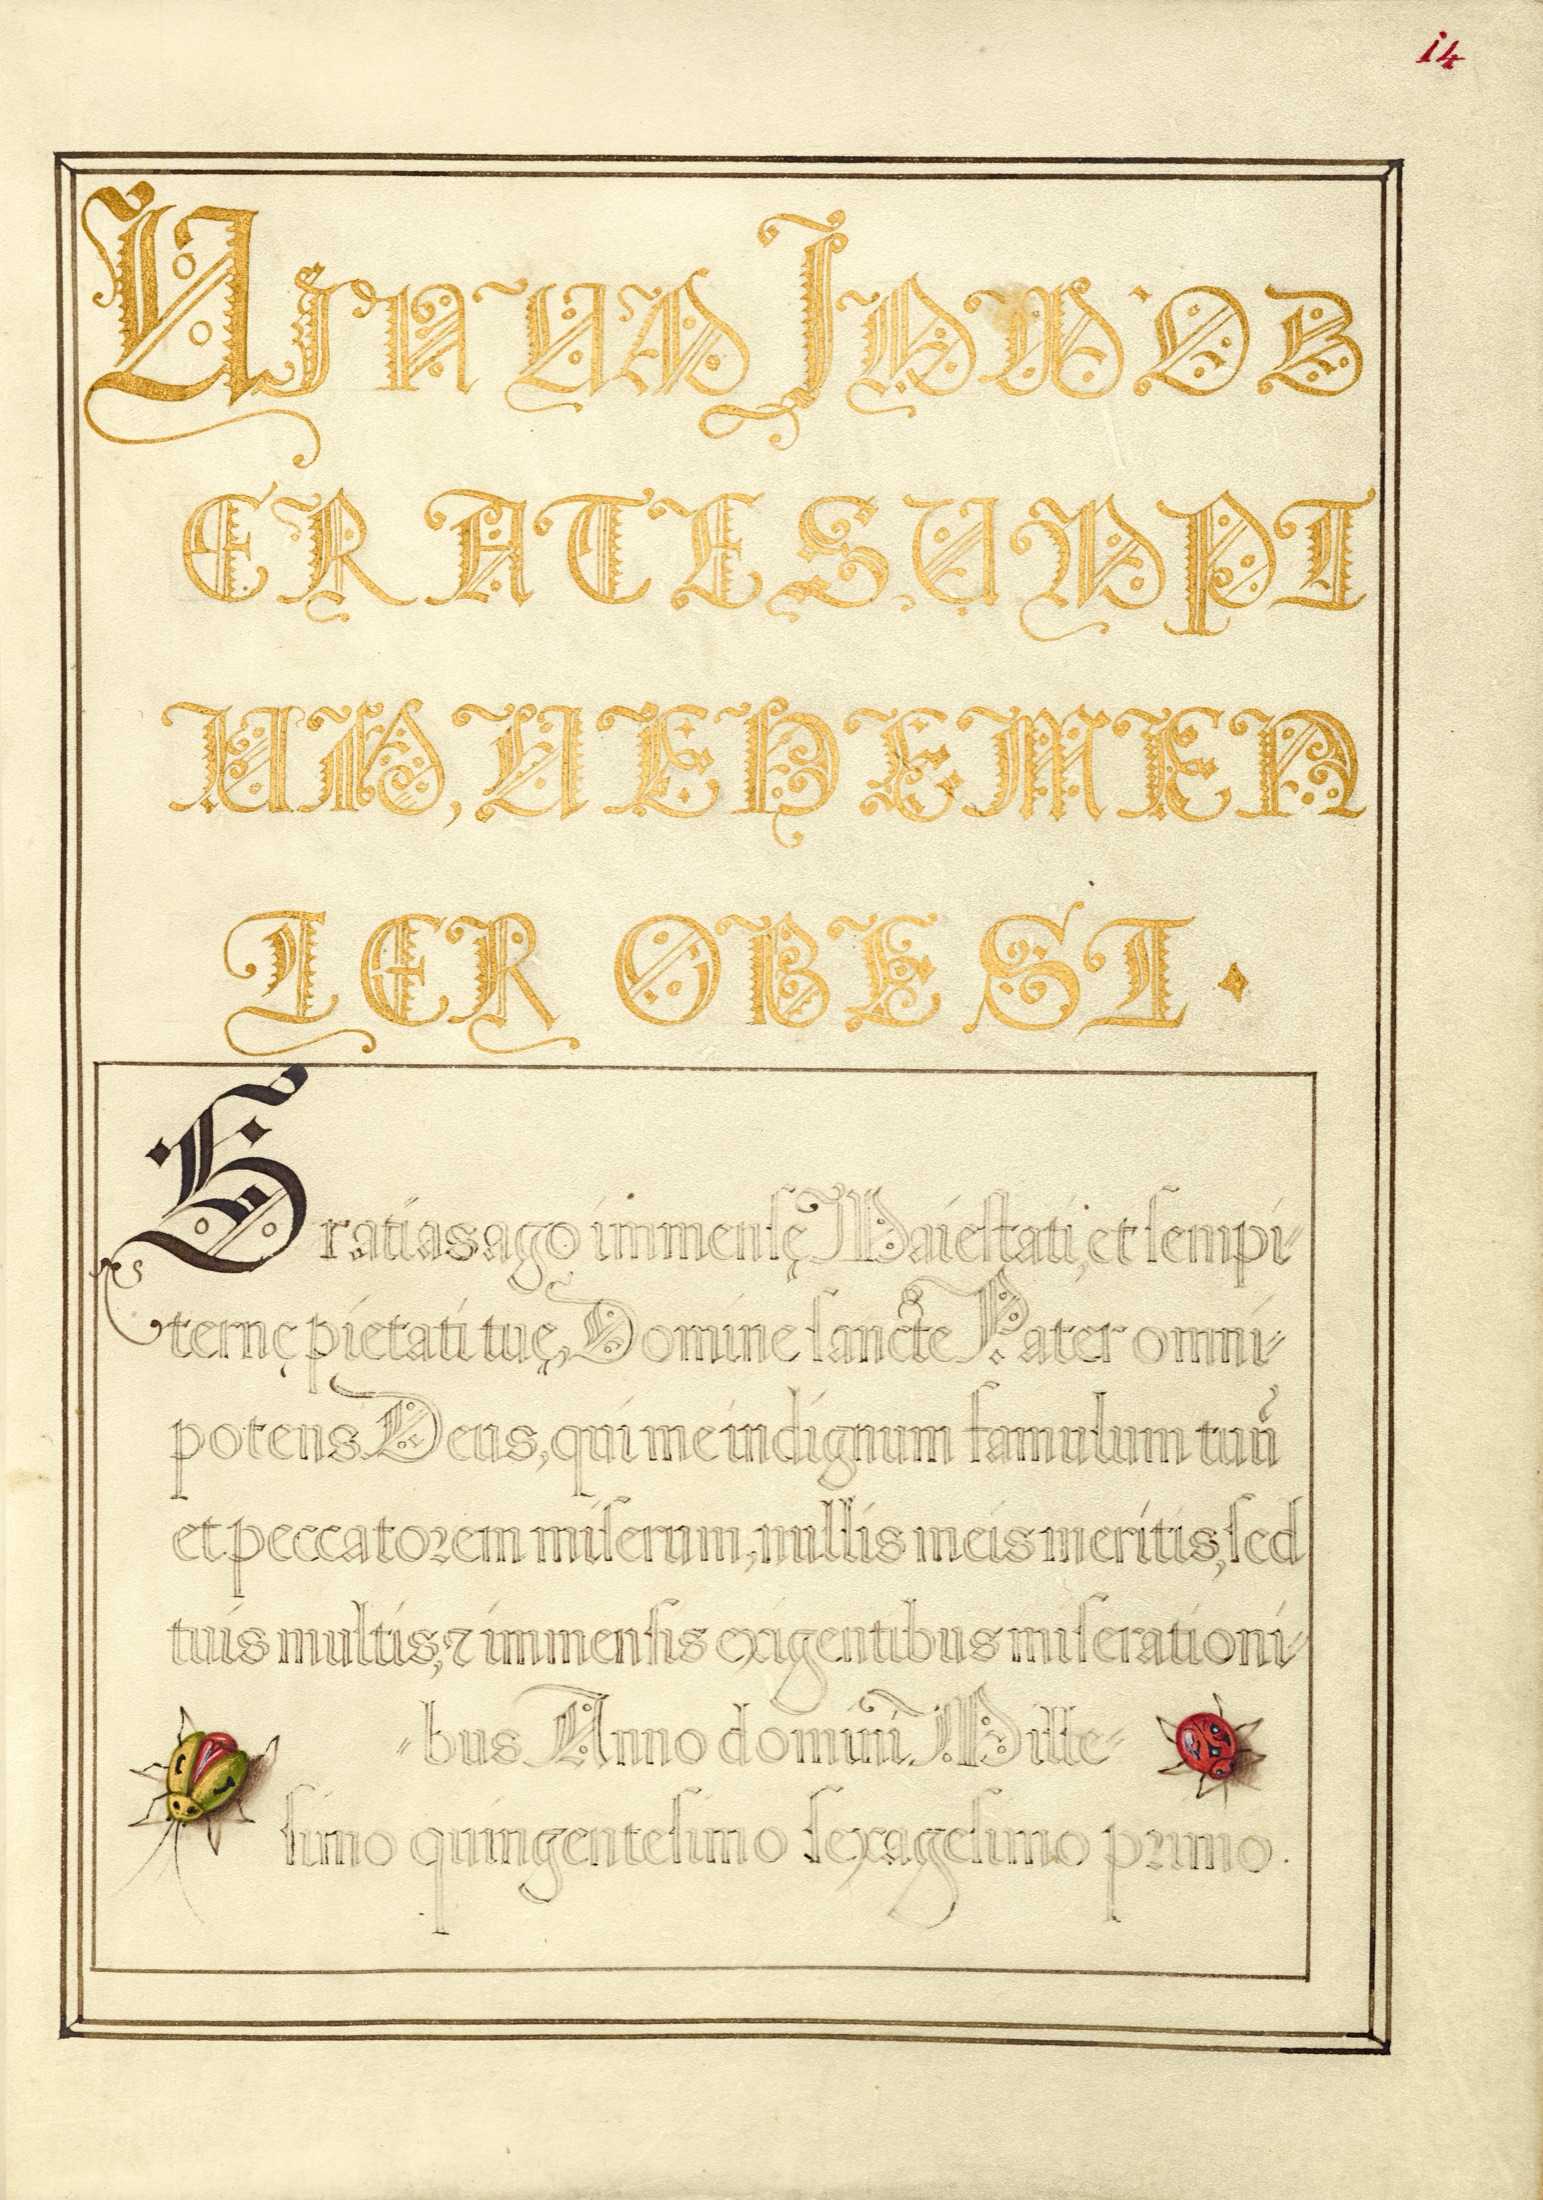 i4
VINUM IMMOD
ERATE SUMPT
UM, VEHEMEN
TER OBEST.
Gratias ago immenſę Maieſtati, et ſempi-
ternę pietati tuę, Domine ſancte Pater omni-
potens Deus, qui me indignum famulum tuū
et peccatorem miſerum, nullis meis meritis, ſed
tuis multis, ⁊ immenſis exigentibus miſerationi-
-bus Anno domini Mille-
ſimo quingenteſimo ſexageſimo primo.